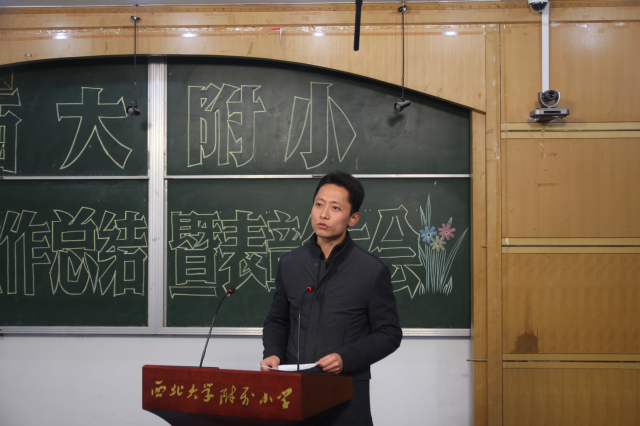 西大附小
作总结暨表彰大会
西北大学附属小学